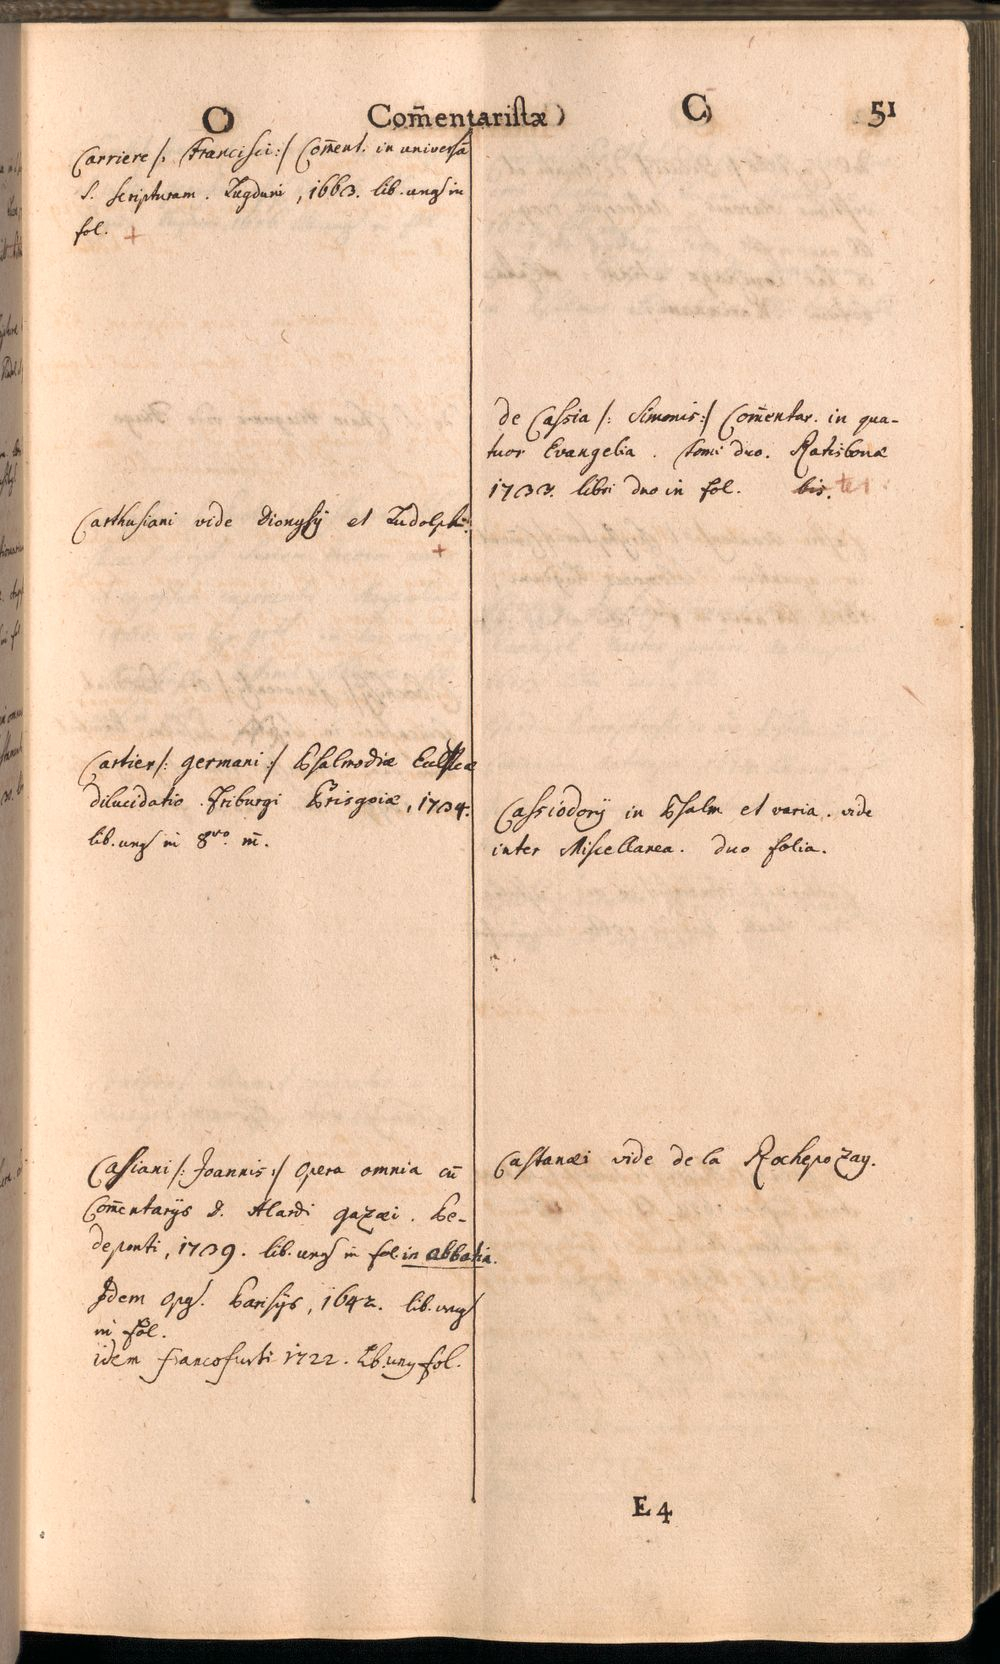 C Com̃entariſtæ C 51
Carriere /: Francisci :/ Com̃ent. in universā
S. Scripturam. Lugduni, 1663. lib. unꝰ in
fol. +
Carthusiani vide Dionysÿ et Ludolph.
+
Cartier /: germani :/ Psalmodiæ Eccl̃icæ
dilucidatio. Friburgi Brisgoiæ, 1734.
lib. unꝰ in 8vo. m̃.
Cassiani /: Joannis :/ Opera omnia cū
Com̃entarÿs D. Alardi gazæi. Pe-
deponti, 1739. lib. unꝰ in fol. in abbatia.
Idem opꝰ. Parisÿs, 1642. lib. unꝰ
in fol.
idem francofurti 1722. Lib. unꝰ fol.
de Cassia /: Simonis :/ Com̃entar. in qua-
tuor Evangelia. tomi duo. Ratisbonæ
1733. libri duo in fol. bis.
Cassiodorÿ in Psalm. et varia. vide
inter Miscellanea. duo folia.
Castanæi vide de la Rochepozay.
E 4